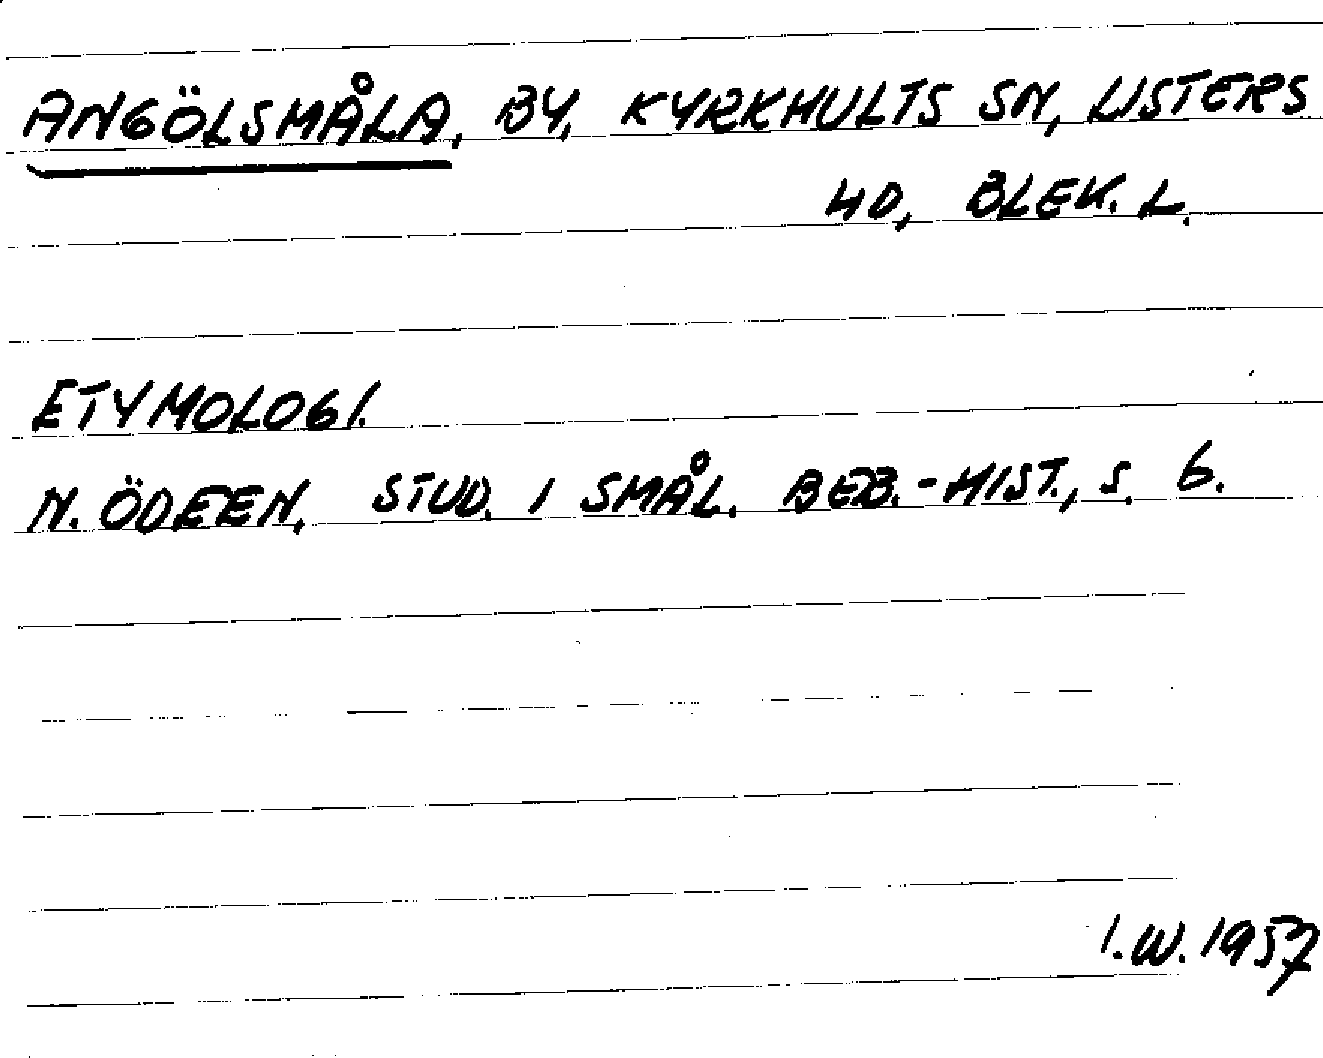 ANGÖLSMÅLA, BY, KYRKHULTS SN, LISTERS
HD, BLEK. L.
ETYMOLOGI.
N. ÖDEEN, STUD. I SMÅL. BEB.-HIST., S. 6.
I.W. 1957